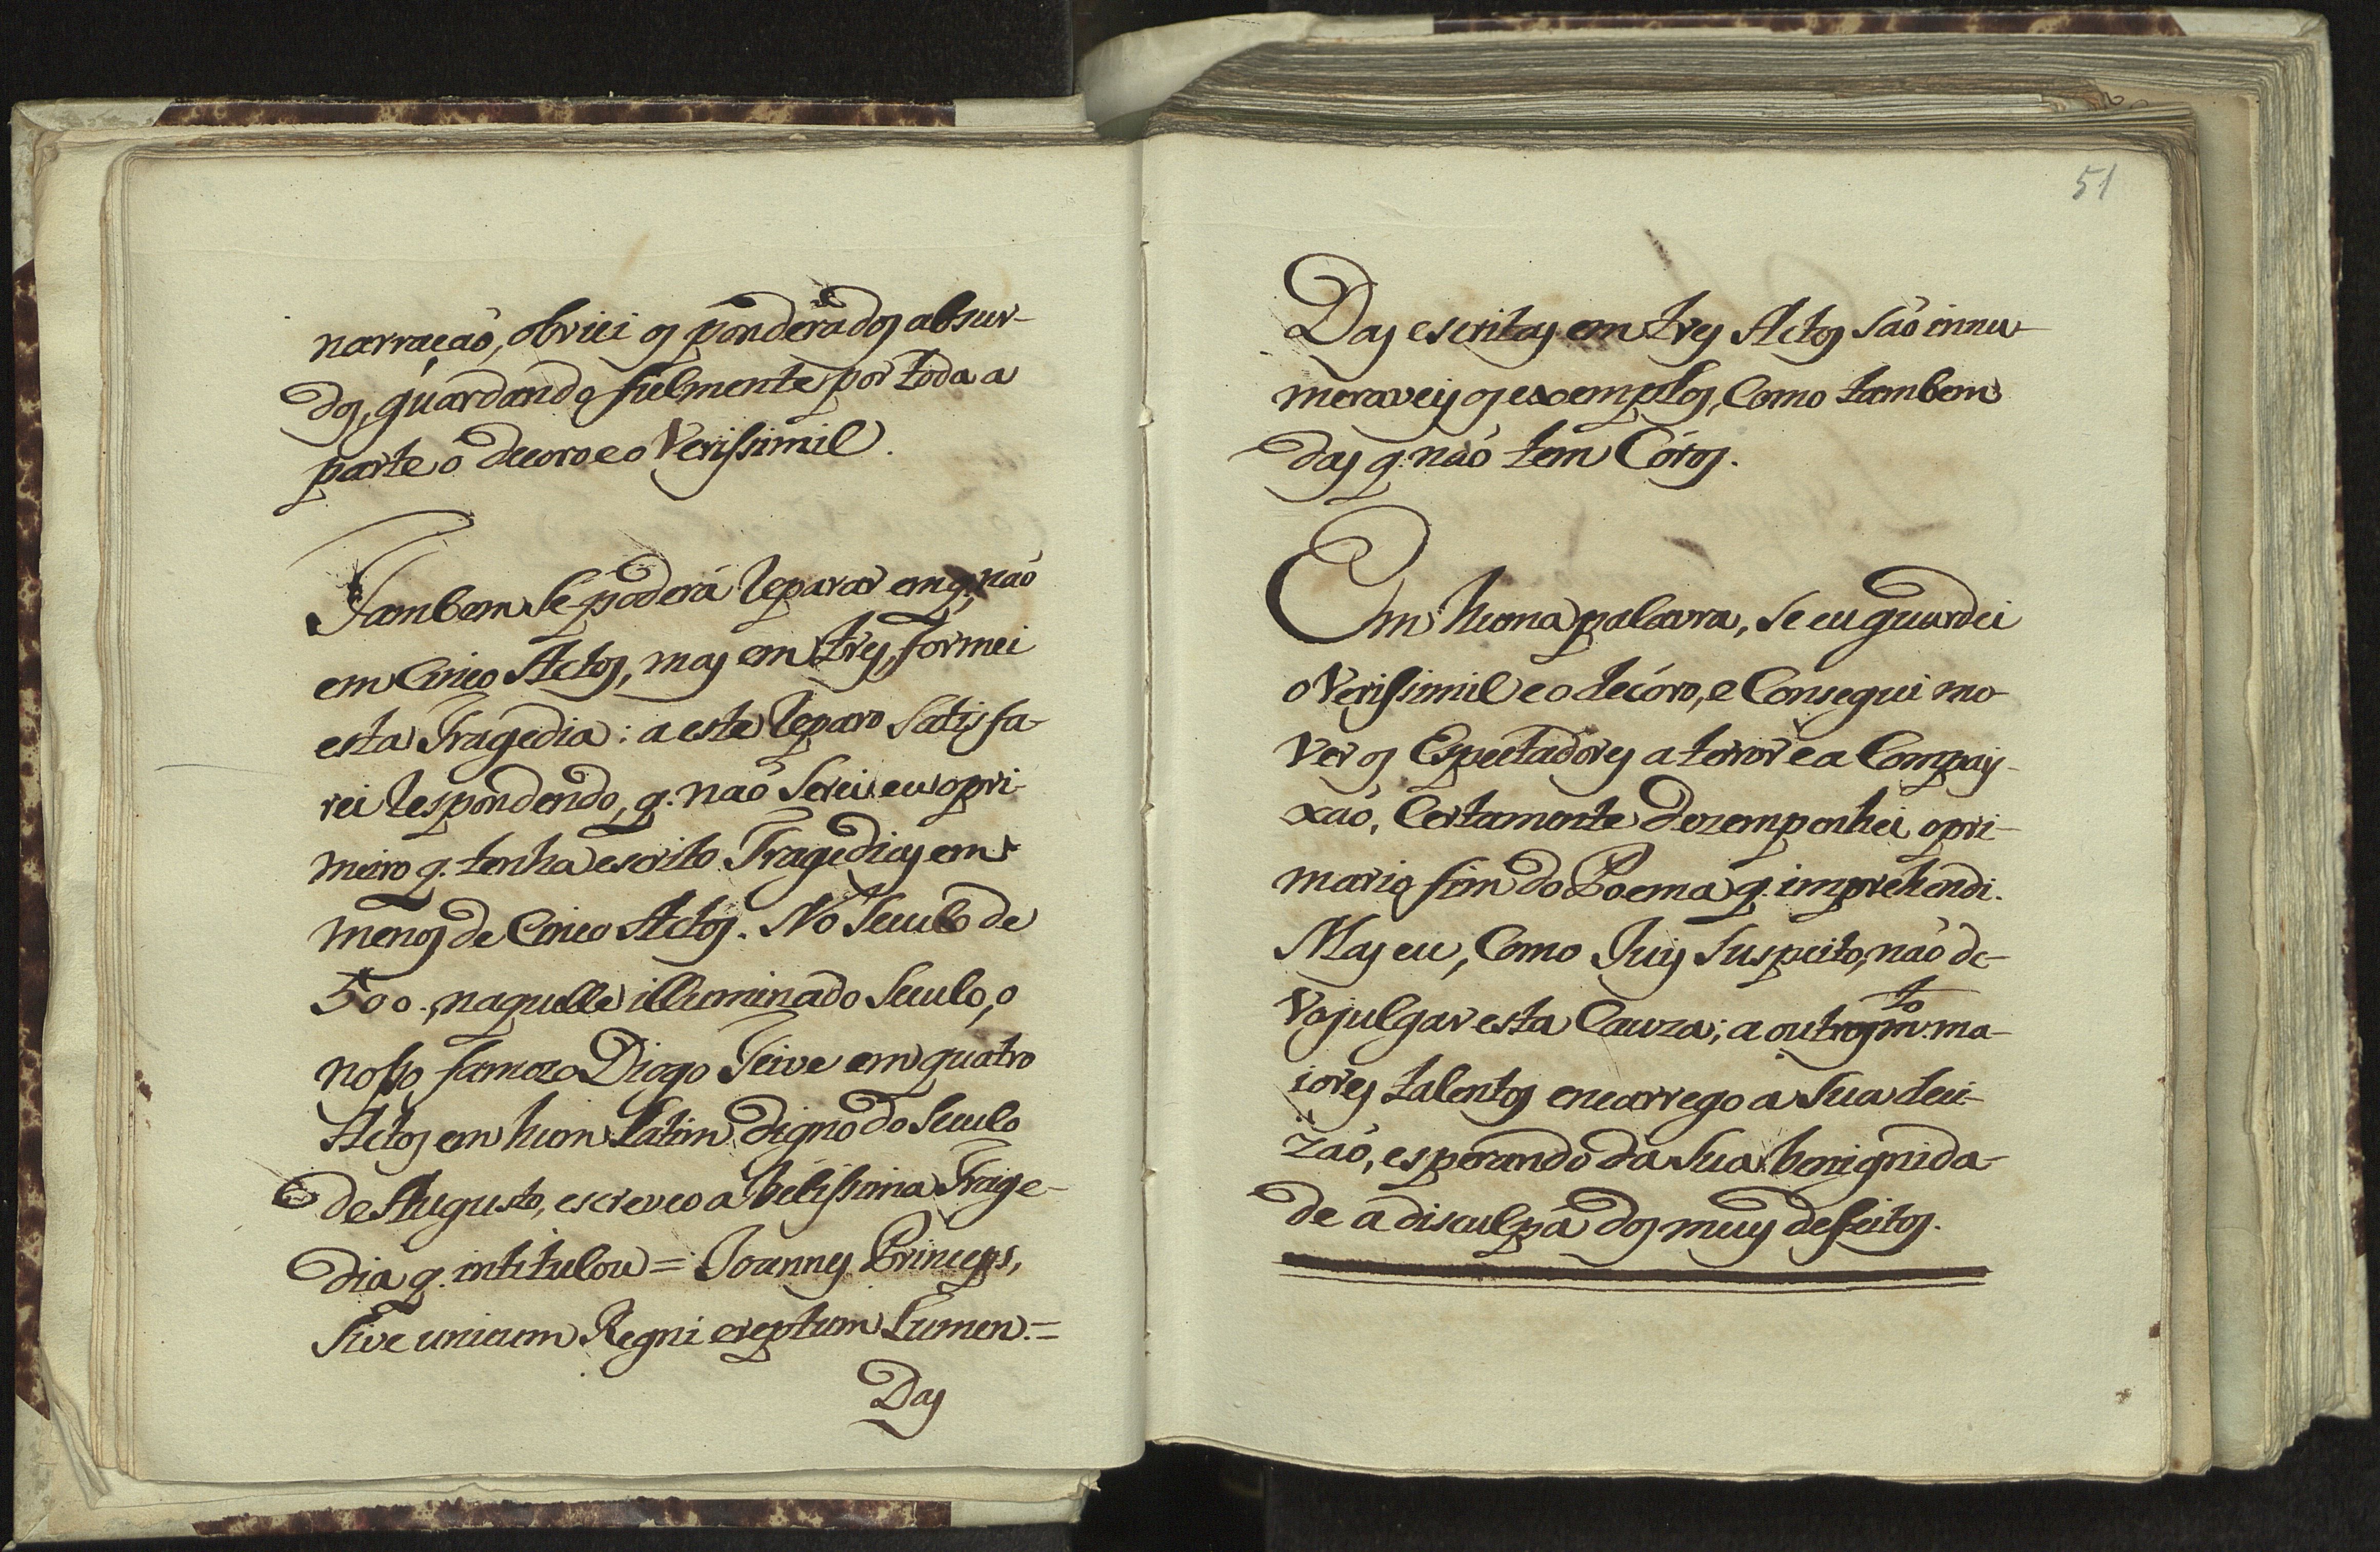 narração, obviei os ponderados absur-
dos, guardando fielmente por toda a
parte o decoro e o Verissimil.
Tambem se poderá reparar em q. não
em Cinco Actos, mas em tres, formei
esta Tragedia: a este reparo satisfa-
rei respondendo, q. não serei eu o pri-
meiro q. tenha escrito Tragedias em
menos de Cinco Actos. No Seculo de
500., naquelle illuminado Seculo, o
nosso famozo Diogo Teive em quatro
Actos em hum Latim digno do Seculo
de Augusto, escreveo a bélissima Trage-
dia q. intitulou = Joannes Princeps,
sive unicum Regni ereptum Lumen. =
Das
51
Das escritas em tres Actos são innu-
meraveis os exemplos, Como tambem
das q. não tem Córos.
Em huma palavra, se eu guardei
o Verissimil e o decóro, e Consegui mo-
ver os Espectadores a terror e a Compay-
xão, Certamente dezempenhei o pri-
mario fim do Poema q. imprehendi.
Mas eu, Como Juis suspeito, não de-
vo julgar esta Cauza; a outros m.to ma-
iores talentos encarrego a sua deci-
zão, esperando da sua benignida-
de a disculpa dos meus defeitos.